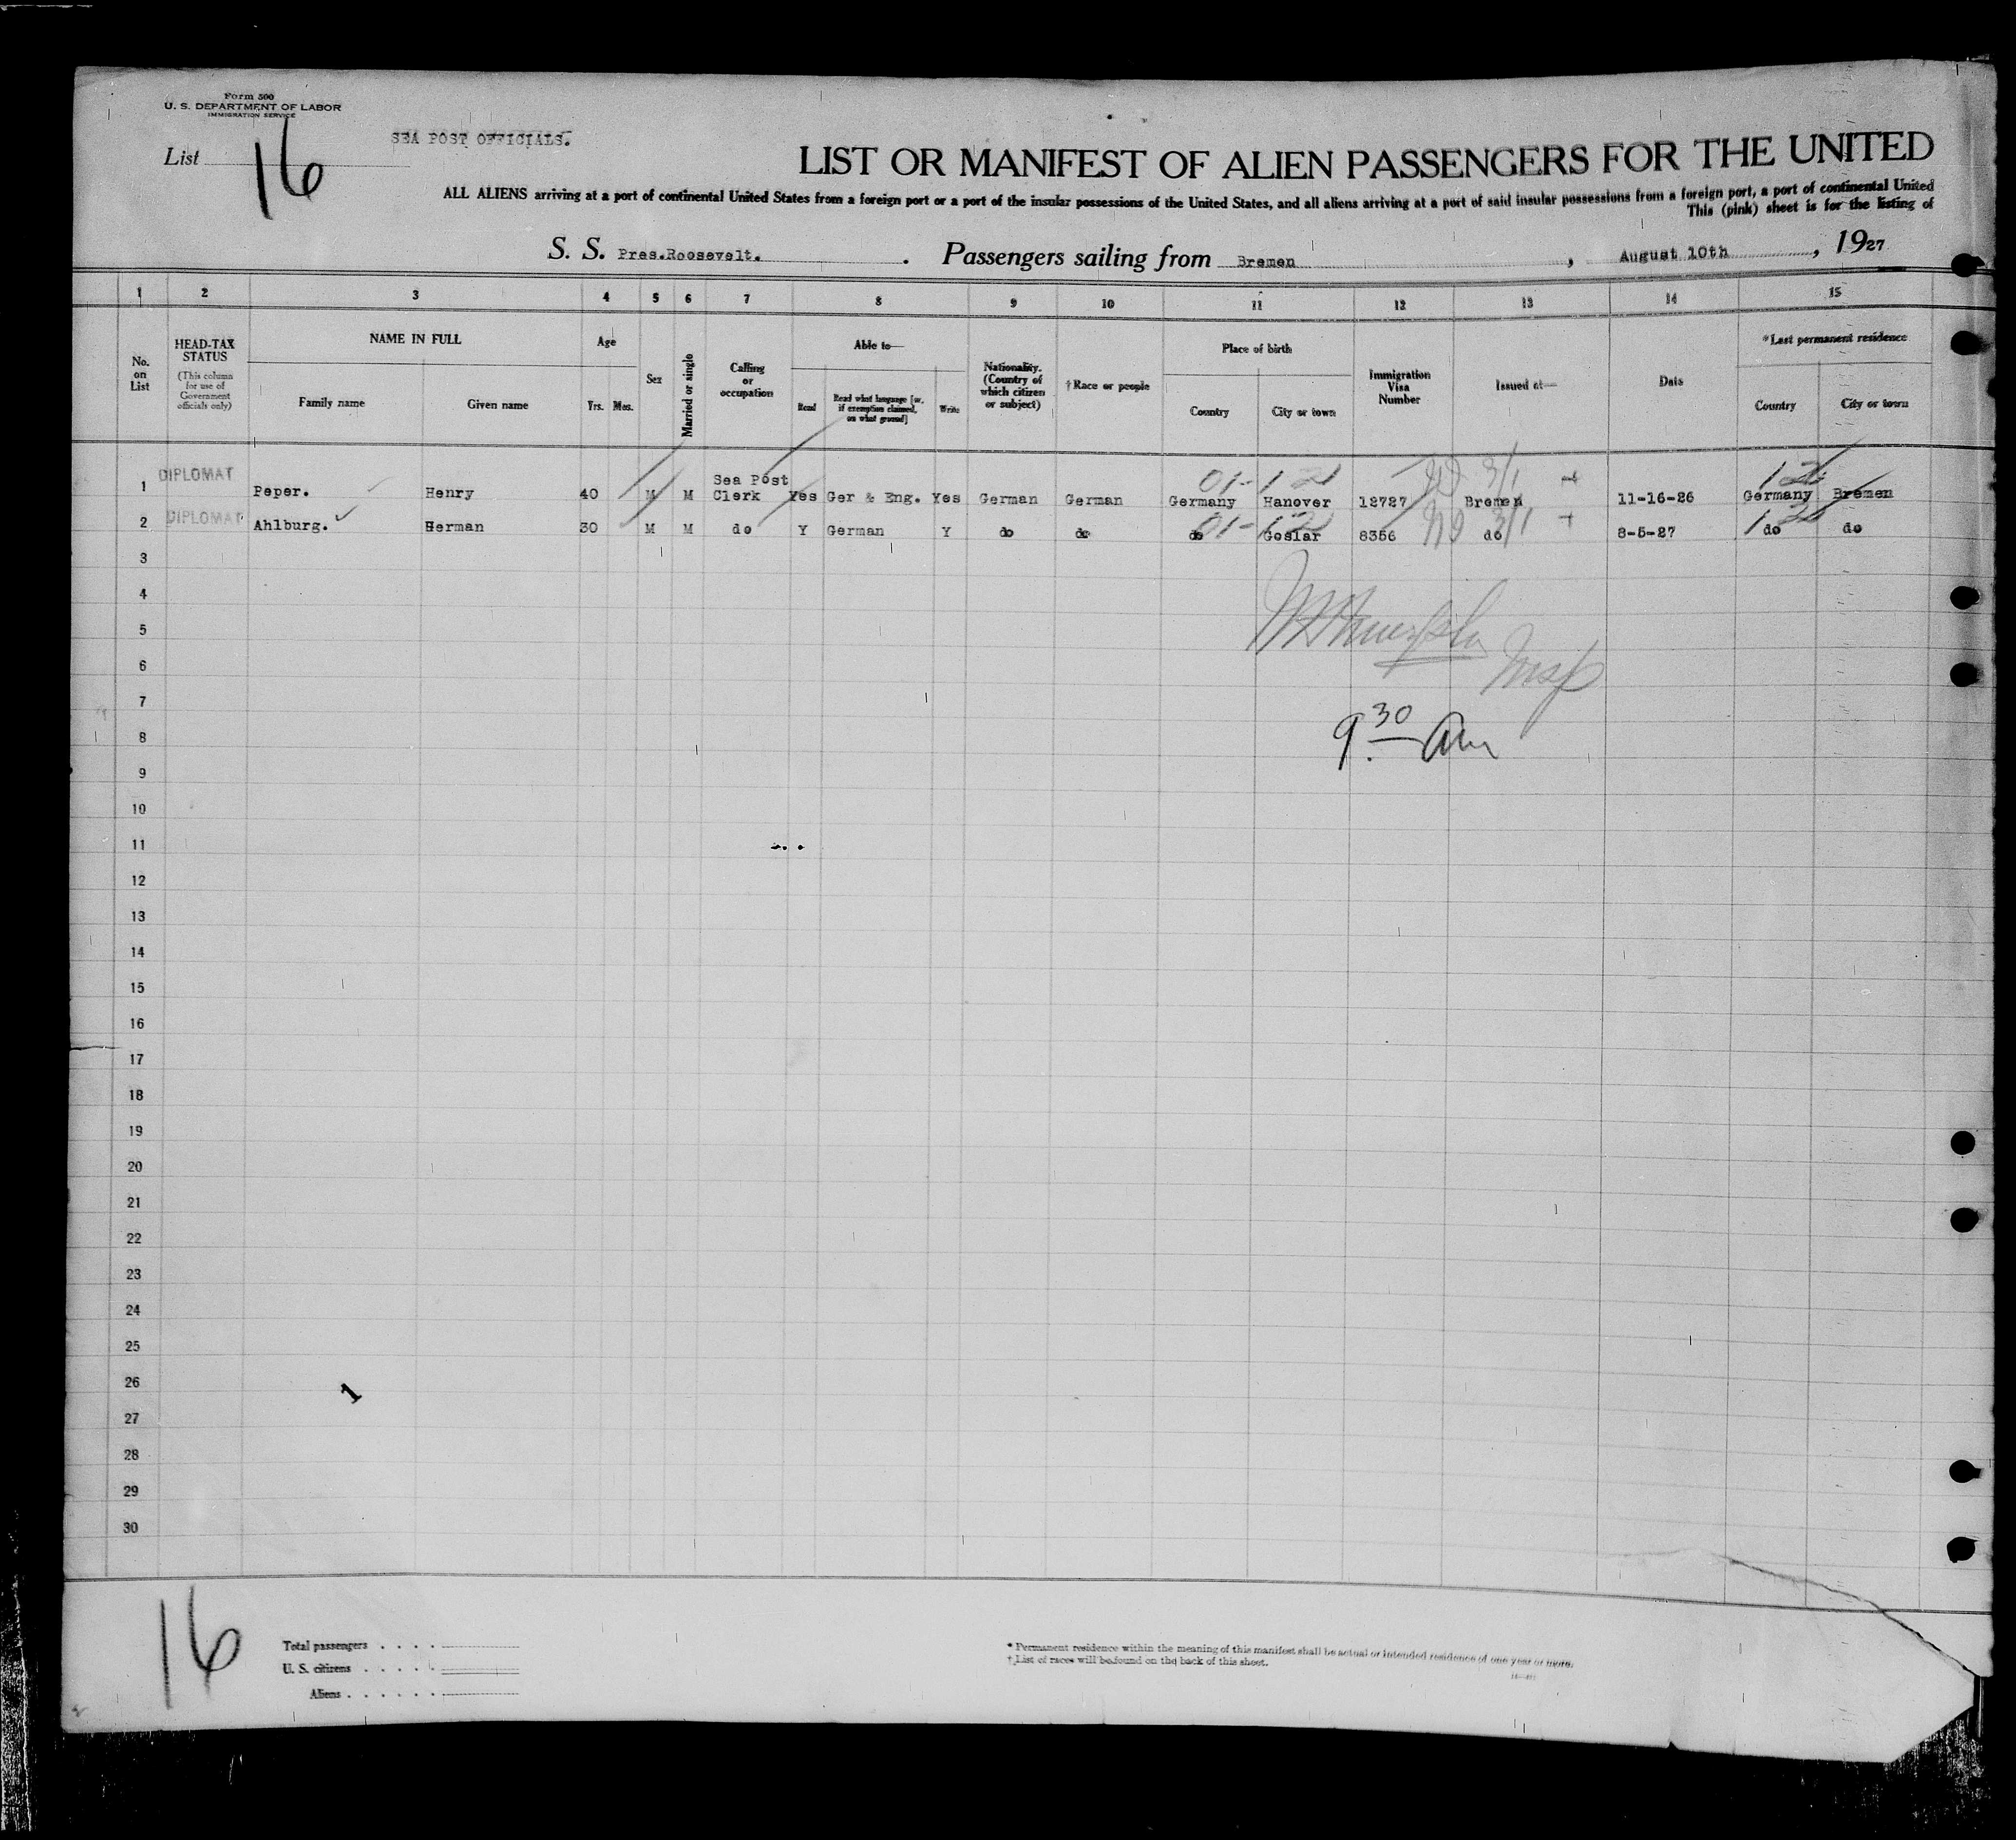 Form 500
U. S. DEPARTMENT OF LABOR
IMMIGRATION SERVICE
SEA POST OFFICIALS.
List 16
LIST OR MANIFEST OF ALIEN PASSENGERS FOR THE UNITED
ALL ALIENS arriving at a port of continental United States from a foreign port or a port of the insular possessions of the United States, and all aliens arriving at a port of said insular possessions from a foreign port, a port of continental United
This (pink) sheet is for the listing of
S. S. Pres.Roosevelt. . Passengers sailing from Bremen , August 10th , 1927
1 2 3 4 5 6 7 8 9 10 11 12 13 14 15
No. on List
HEAD-TAX STATUS
(This column for use of Government officials only)
NAME IN FULL
Family name Given name
Age
Yrs. Mos.
Sex
Married or single
Calling or occupation
Able to—
Read
Read what language [or, if exemption claimed, on what ground]
Write
Nationality. (Country of which citizen or subject)
†Race or people
Place of birth
Country City or town
Immigration Visa Number
Issued at—
Date
*Last permanent residence
Country City or town
01- 1 21 3/1 1 21
1 DIPLOMAT Peper. Henry 40 M M Sea Post Clerk Yes Ger & Eng. Yes German German Germany Hanover 12727 Bremen 11-16-26 Germany Bremen
01- 1 21 3/1 1
2 DIPLOMAT Ahlburg. Herman 30 M M do Y German Y do do do Goslar 8356 do 8-5-27 do do
3
4
5
6
Insp
7
9.30 am
8
9
10
11
12
13
14
15
16
17
18
19
20
21
22
23
24
25
26
1
27
28
29
30
16
Total passengers . . . .
U. S. citizens . . . . .
Aliens . . . . . .
* Permanent residence within the meaning of this manifest shall be actual or intended residence of one year or more.
† List of races will be found on the back of this sheet.